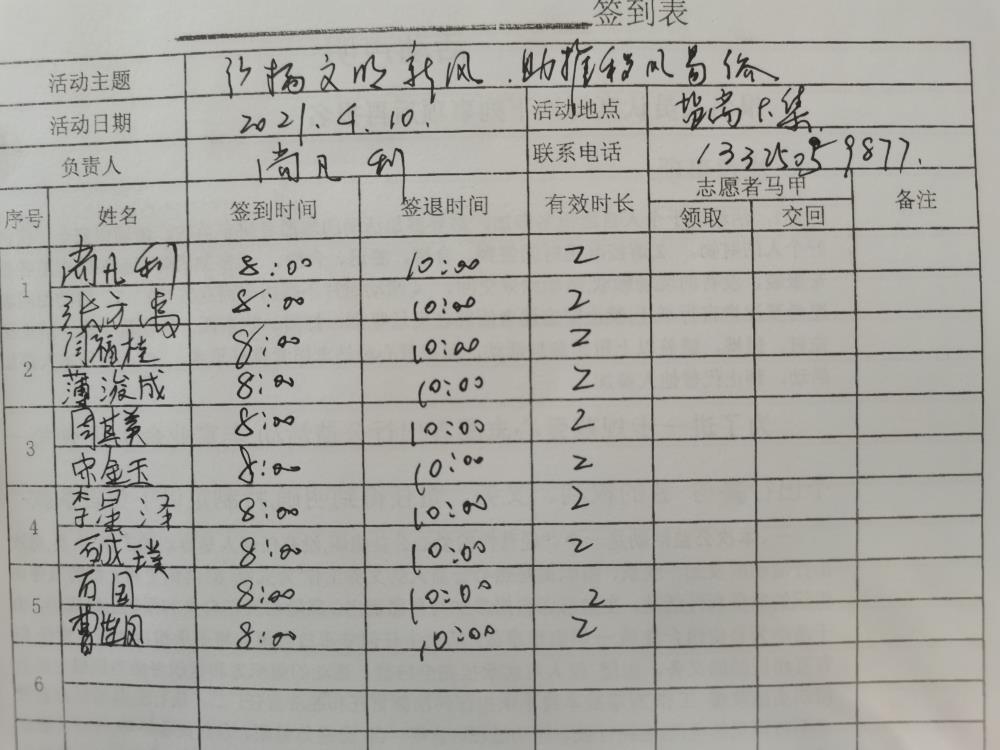 签到表
活动主题 弘扬文明新风.助推移风易俗
活动日期 2021.4.10. 活动地点 大集
负责人 尚凡利 联系电话 13325059877.
序号 姓名 签到时间 签退时间 有效时长 志愿者马甲 备注
领取 交回
1 尚凡利 8:00 10:00 2
张方禹 8:00 10:00 2
2 闫福桂 8:00 10:00 2
薄浚成 8:00 10:00 2
3 周其美 8:00 10:00 2
宋金玉 8:00 10:00 2
4 李星泽 8:00 10:00 2
成璞 8:00 10:00 2
5 国 8:00 10:00 2
曹连凤 8:00 10:00 2
6